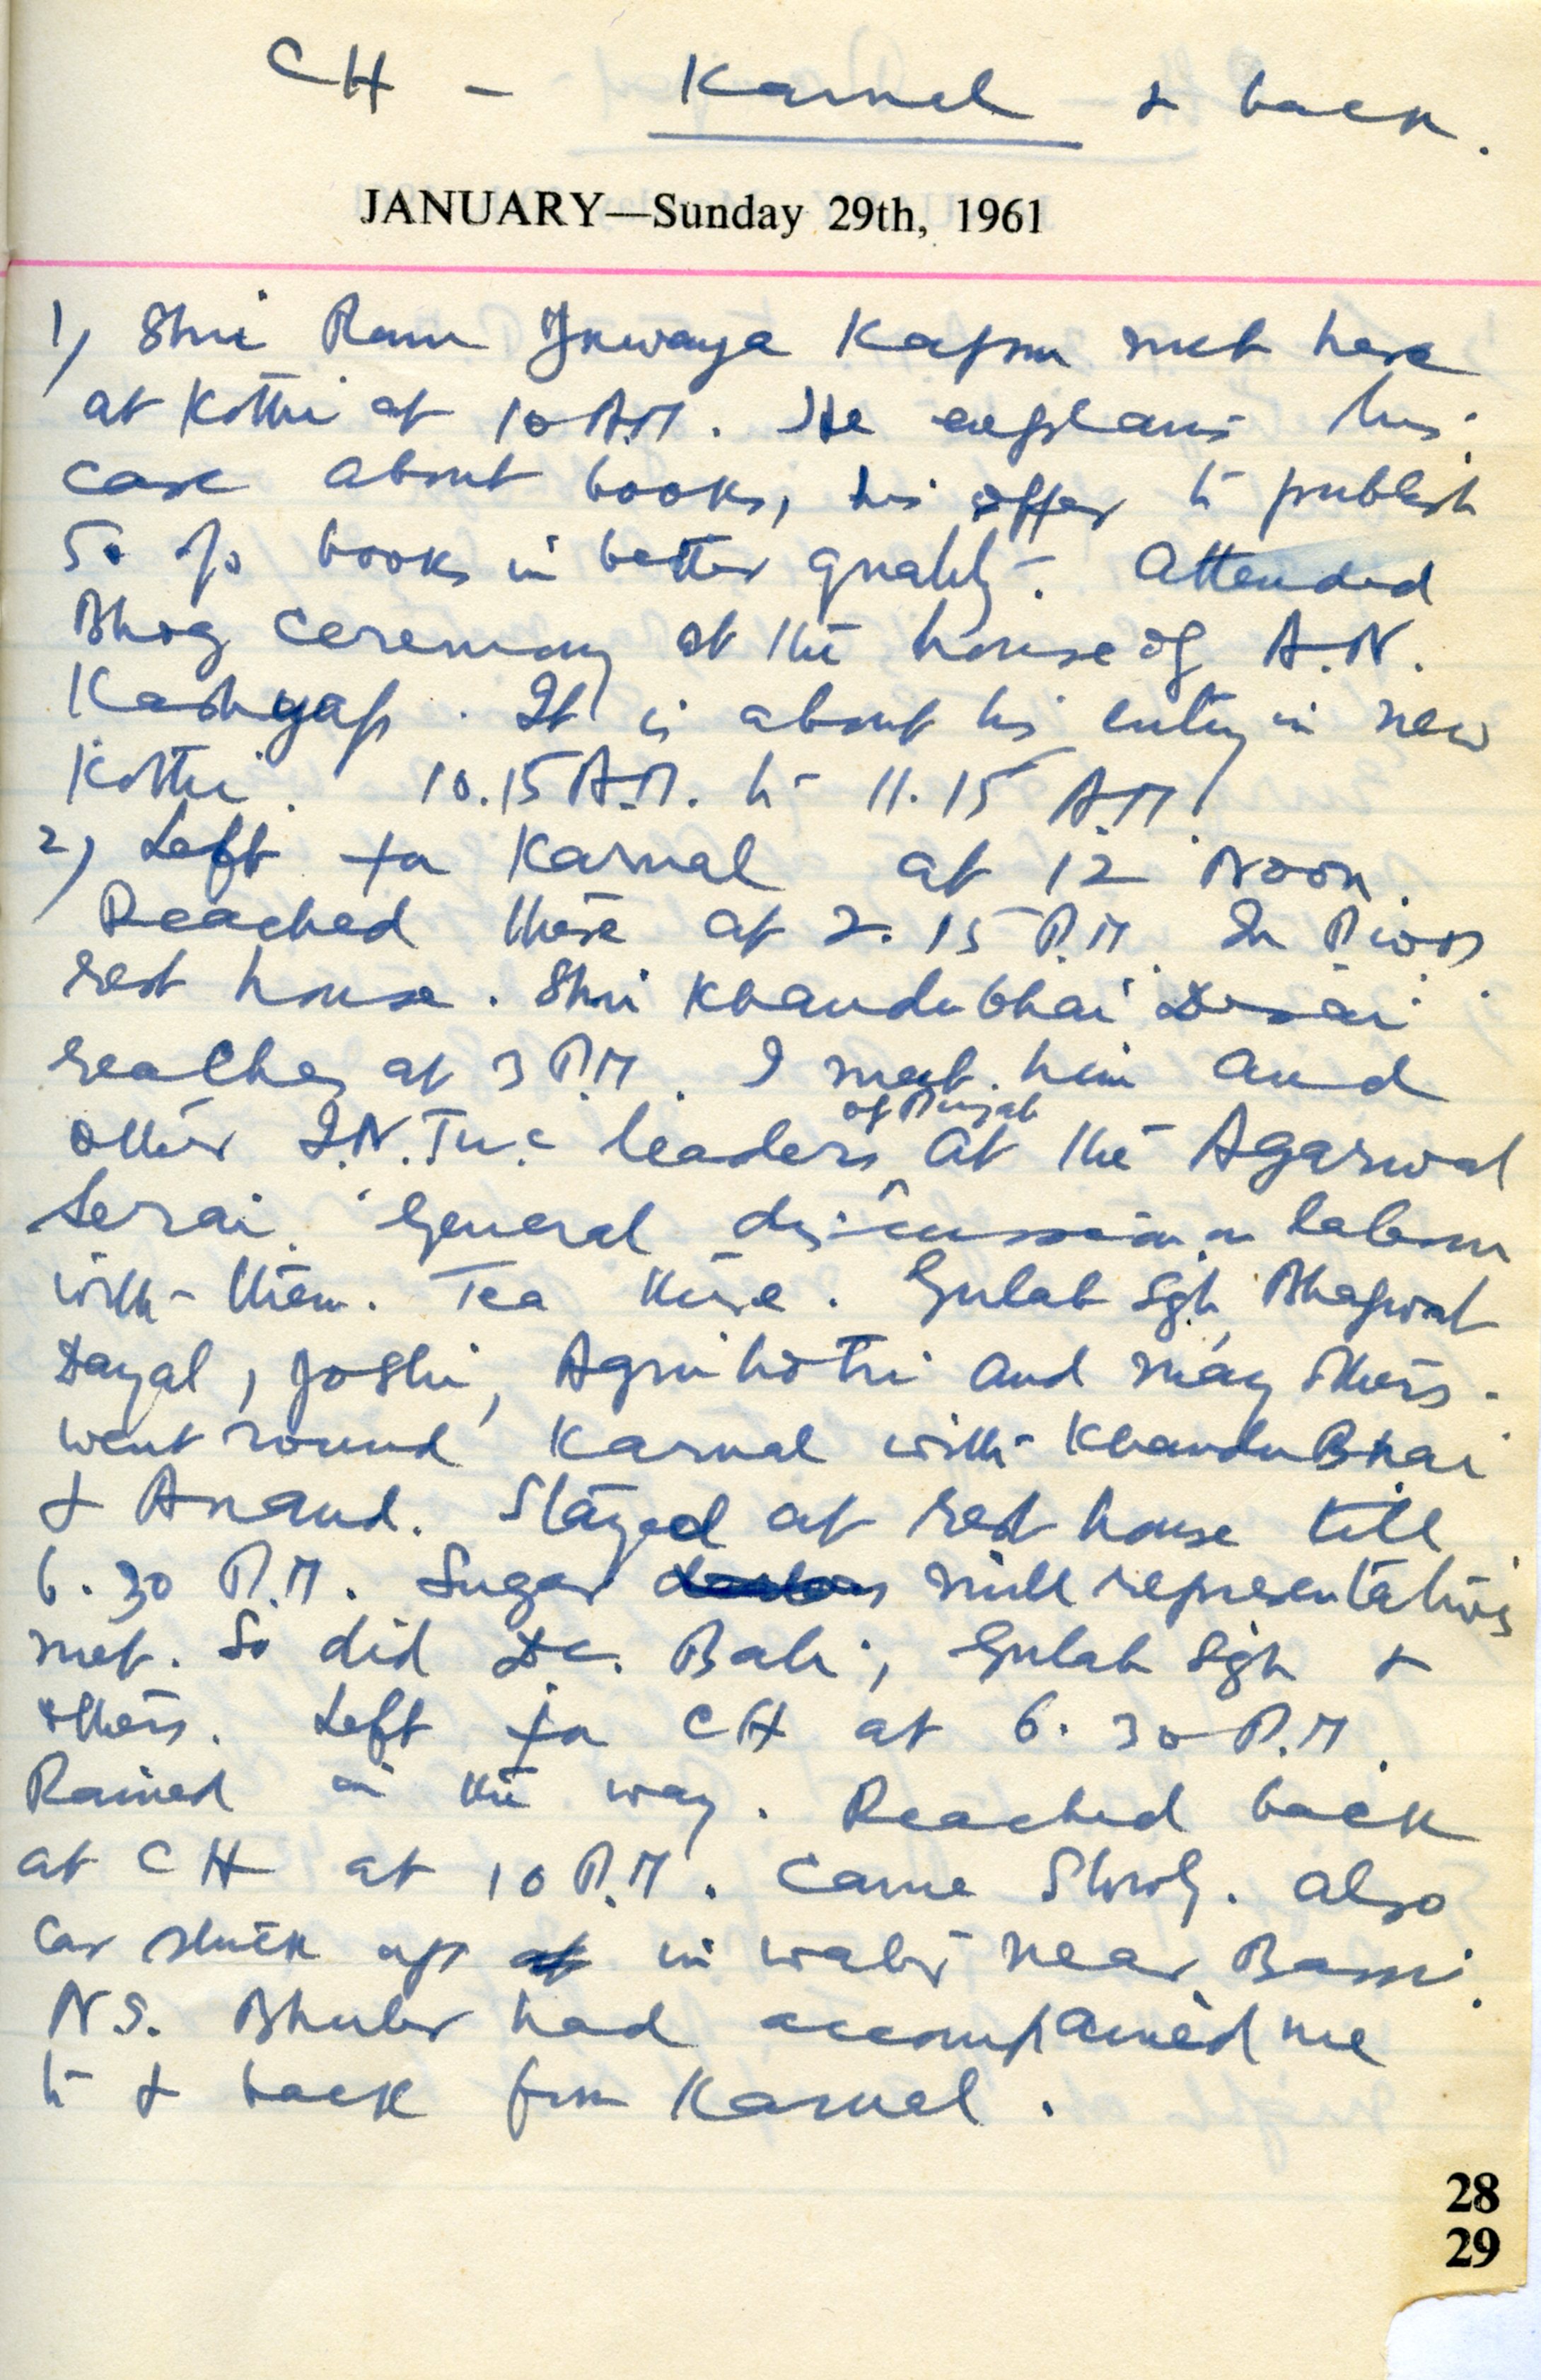 CH - Karnal & back.
JANUARY—Sunday 29th, 1961
1) Shri Ram Jawaya Kapur met here
at Kothi at 10 A.M. He explains his
case about books, his offer to publish
50 % books in better quality. Attended
Bhog ceremony at the house of A.N.
Kashyap. It is about his entry in new
Kothi. 10.15 A.M. to 11.15 A.M.
2) Left for Karnal at 12 Noon.
Reached there at 2.15 P.M. In
rest house. Shri Khandubhai Desai
reaches at 3 P.M. I met him and
of Punjab
other I.N.Tu.c leaders at the Agarwal
Serai. General discussion on labour
with them. Tea there. Gulab Sgh, Bhagwat
Dayal, Joshi, Agnihotri and many others.
went round Karnal with KhanduBhai
& Anand. Stayed at rest house till
6.30 P.M. Sugar mill representatives
met. So did Dc. Bali, Gulab Sgh &
others. Left for CH at 6.30 P.M.
Rained on the way. Reached back
at CH at 10 P.M. Came slowly. Also
Car stuck up in water near Bassi.
N.S. had accompained me
to & back from Karnal.
28
29